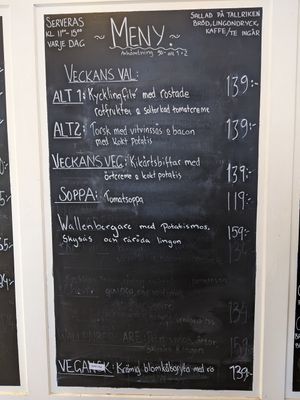 SERVERAS
KL 11:00 - 15:00
VARJE DAG
SALLAD PÅ TALLRIKEN
BRÖD, LINGONDRYCK,
KAFFE/TE INGÅR
~ MENY. ~
Avhämtning 90:- alt 1-2
VECKANS VAL:
ALT 1: Kycklingfilé med rostade 139:-
rotfrukter & soltorkad tomatcreme
ALT2: Torsk med vitvinssås & bacon 139:-
med kokt potatis
VECKANS VEG: Kikärtsbiffar med 139:-
örtcreme & kokt potatis
SOPPA: Tomatsoppa 119:-
Wallenbergare med potatismos, 159:-
skysås och rårörda lingon
VEGANSK: Krämig blomkålsgryta med ris 139:-